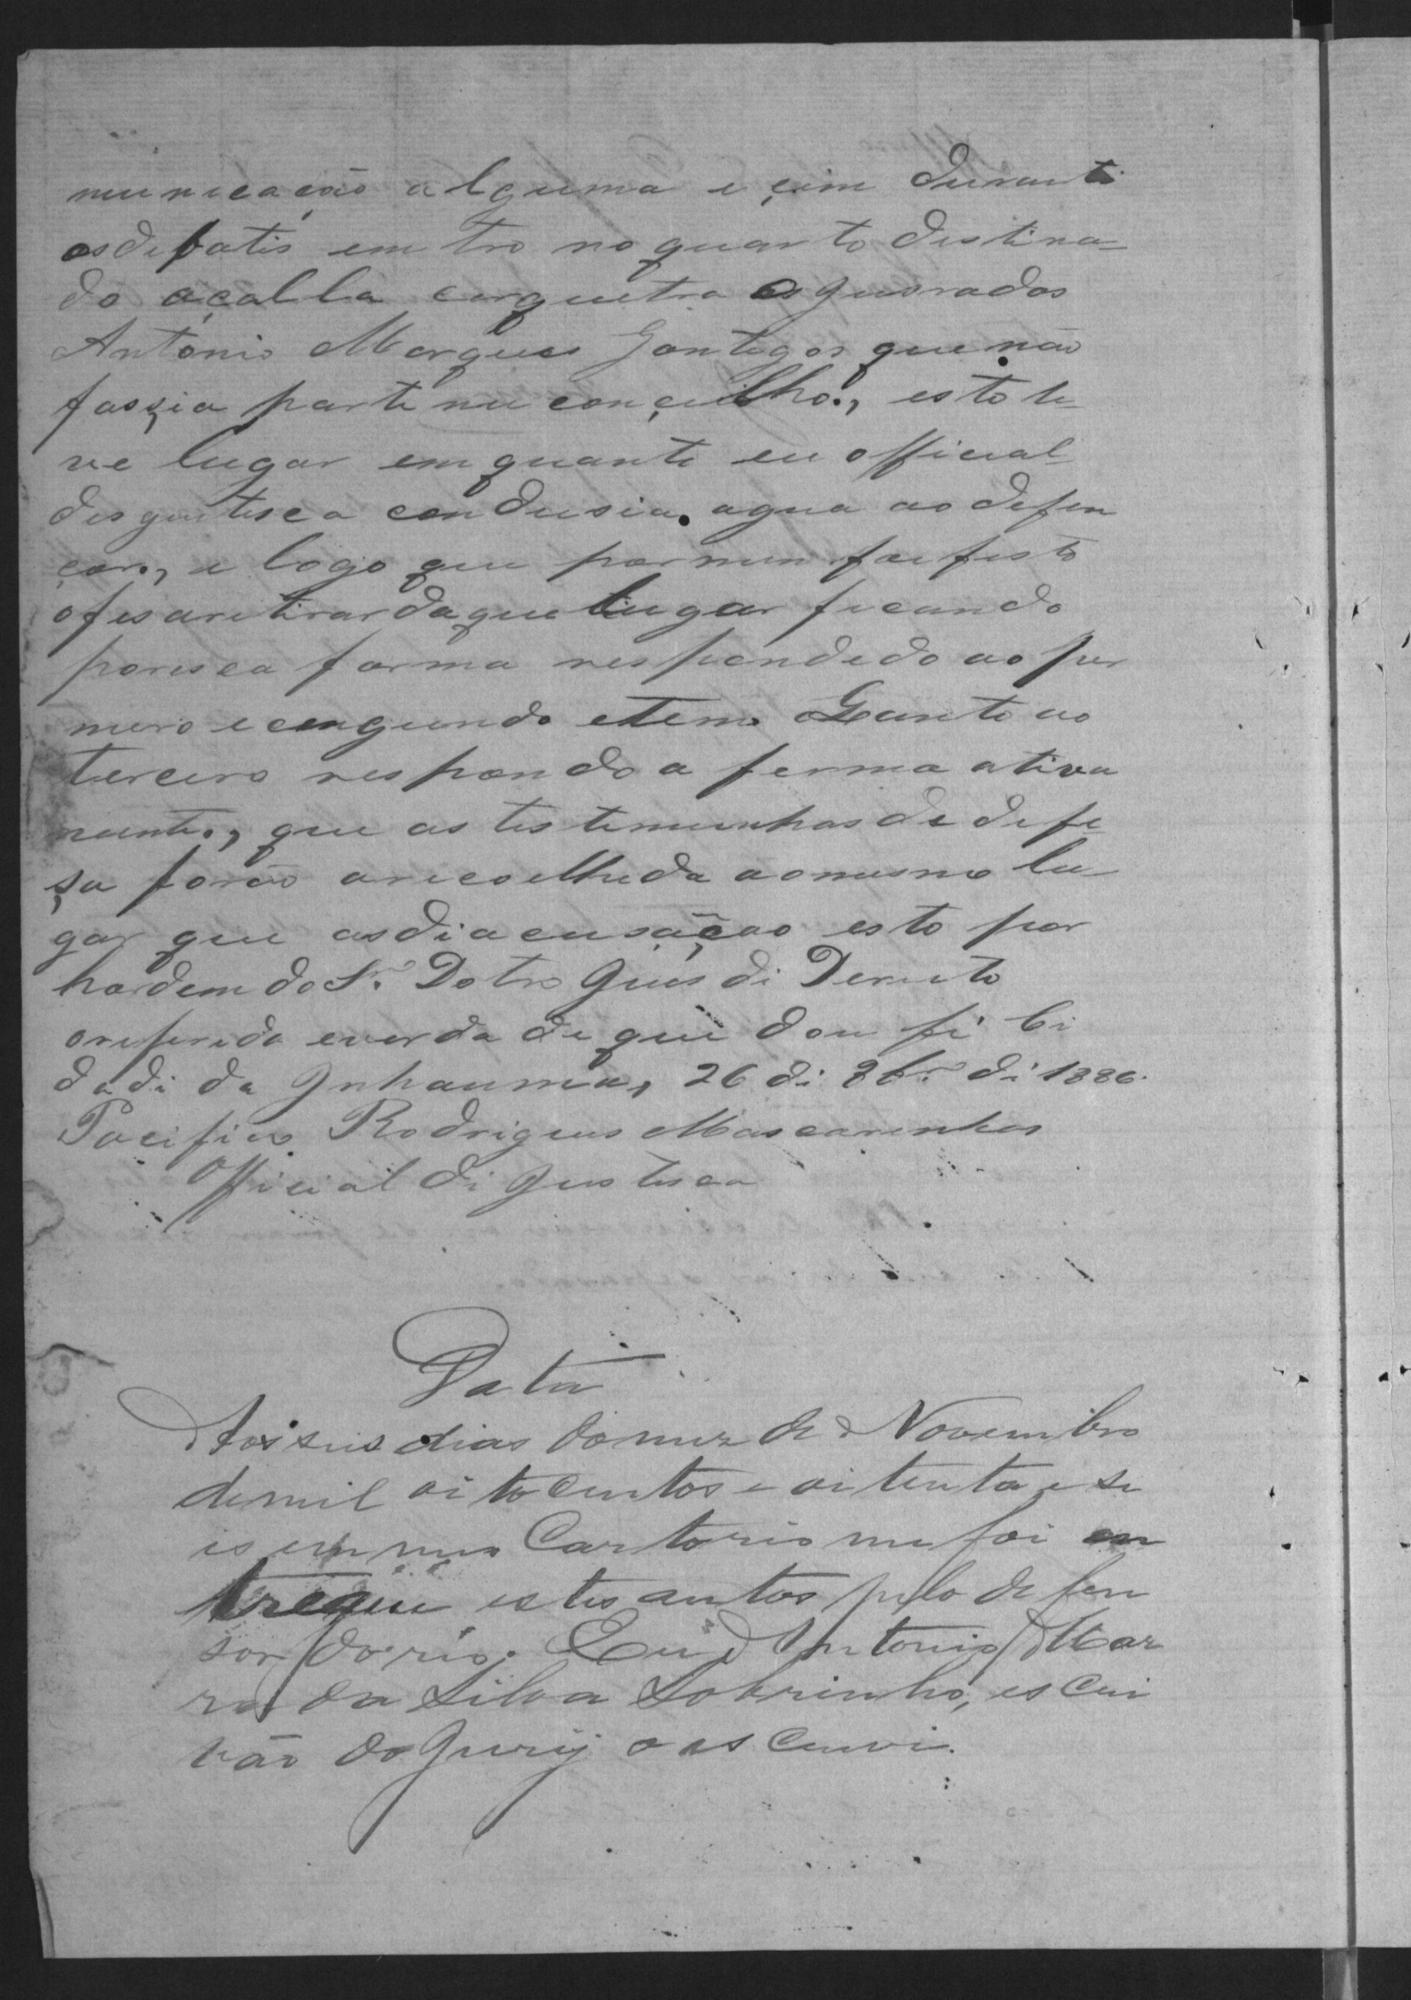 municação alguma e çim durante
os debatis em tro no quarto destina-
do açalla cerqueta os jusrados
Antonio Marques Gontigos que não
faszia parte nu conçeilho., esto te-
ve lugar emquante eu official
desjustisca condusia agua ao defen
çor., e logo que por mim foi festo
o fes aretirar da que lugar ficando
porisca forma respondedo ao pri
mero e cengundo etem. Quanto ao
terceiro respondo a ferma ativa
mente., que as testemunhas de defe
ça forão arecolheda ao mesmo lu-
gar que as diacusação esto por
hordem do Sr. Dotro Juis di Dereito
oreferido everdade que dou fé Ci
dadi da Inhauma, 26 di 8br.º di 1886.
Pacifico Rodrigues Mascarenhas
Official di Justisca
Data
Aos seis dias do mez de Novembro
de mil oito centos e oitenta e se
is em meu Cartorio me foi en
tregue estes autos pelo defen
sor do réo. Eu Antonio Mar
ra da Silva Sobrinho, escri
vão do Jury o escrevi.